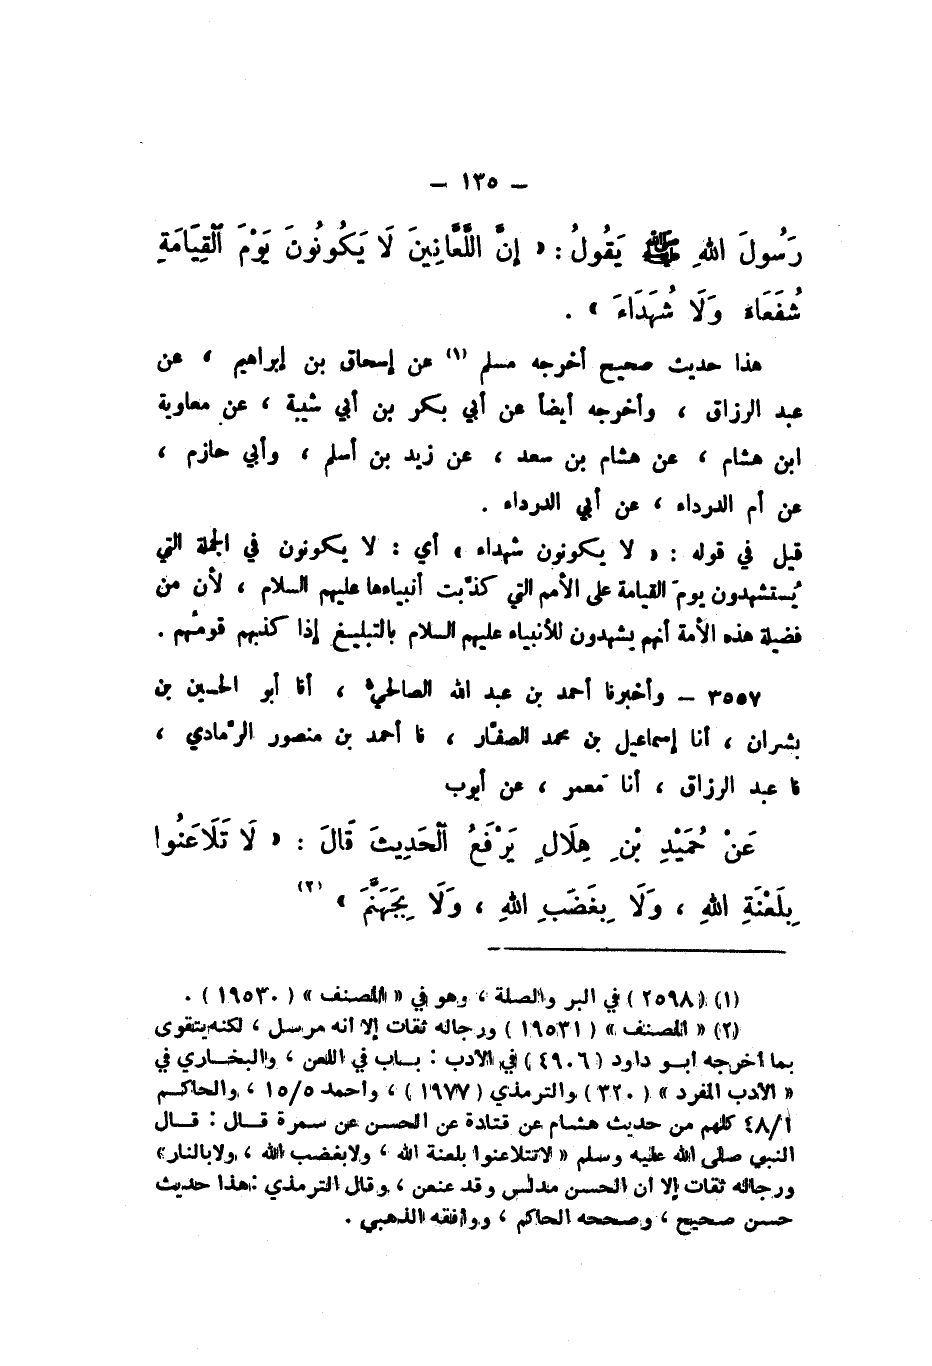 – ١٣٥ –
رَسُولَ اللهِ ﷺ يَقُولُ : « إِنَّ اللَّعَّانِينَ لَا يَكُونُونَ يَوْمَ ٱلْقِيَامَةِ
شُفَعَاءَ وَلَا شُهَدَاءَ » .
هذا حديث صحيح أخرجه مسلم (١) عن إسحاق بن إبراهيم ، عن
عبد الرزاق ، وأخرجه أيضاً عن أبي بكر بن أبي شيبة ، عن معاوية
ابن هشام ، عن هشام بن سعد ، عن زيد بن أسلم ، وأبي حازم ،
عن أم الدرداء ، عن أبي الدرداء .
قيل في قوله : « لا يكونون شهداء » أي : لا يكونون في الجملة التي
يُستشهدون يومَ القيامة على الأمم التي كذَّبت أنبياءها عليهم السلام ، لأن من
فضيلة هذه الأمة أنهم يشهدون للأنبياء عليهم السلام بالتبليغ إذا كذبهم قومُهم .
٣٥٥٧ – وأخبرنا أحمد بن عبد الله الصالحيُّ ، أنا أبو الحسين بن
بشران ، أنا إسماعيل بن محمد الصفَّار ، نا أحمد بن منصور الرَّمادي ،
نا عبد الرزاق ، أنا مَعمر ، عن أيوب
عَنْ حُمَيْدِ بْنِ هِلَالٍ يَرْفَعُ ٱلْحَدِيثَ قَالَ : « لَا تَلَاعَنُوا
بِلَعْنَةِ اللهِ ، وَلَا بِغَضَبِ اللهِ ، وَلَا بِجَهَنَّمَ » (٢)
(١) (٢٥٩٨) في البر والصلة ، وهو في « المصنف » (١٩٥٣٠) .
(٢) « المصنف » (١٩٥٣١) ورجاله ثقات إلا انه مرسل ، لكنه يتقوى
بما أخرجه ابو داود (٤٩٠٦) في الأدب : باب في اللعن ، والبخاري في
« الأدب المفرد » (٣٢٠) والترمذي (١٩٧٧) ، وأحمد ١٥/٥ ، والحاكم
٤٨/١ كلهم من حديث هشام عن قتادة عن الحسن عن سمرة قال : قال
النبي صلى الله عليه وسلم « لا تتلاعنوا بلعنة الله ، ولا بغضب الله ، ولا بالنار »
ورجاله ثقات إلا ان الحسن مدلس وقد عنعن ، وقال الترمذي : هذا حديث
حسن صحيح ، وصححه الحاكم ، ووافقه الذهبي .